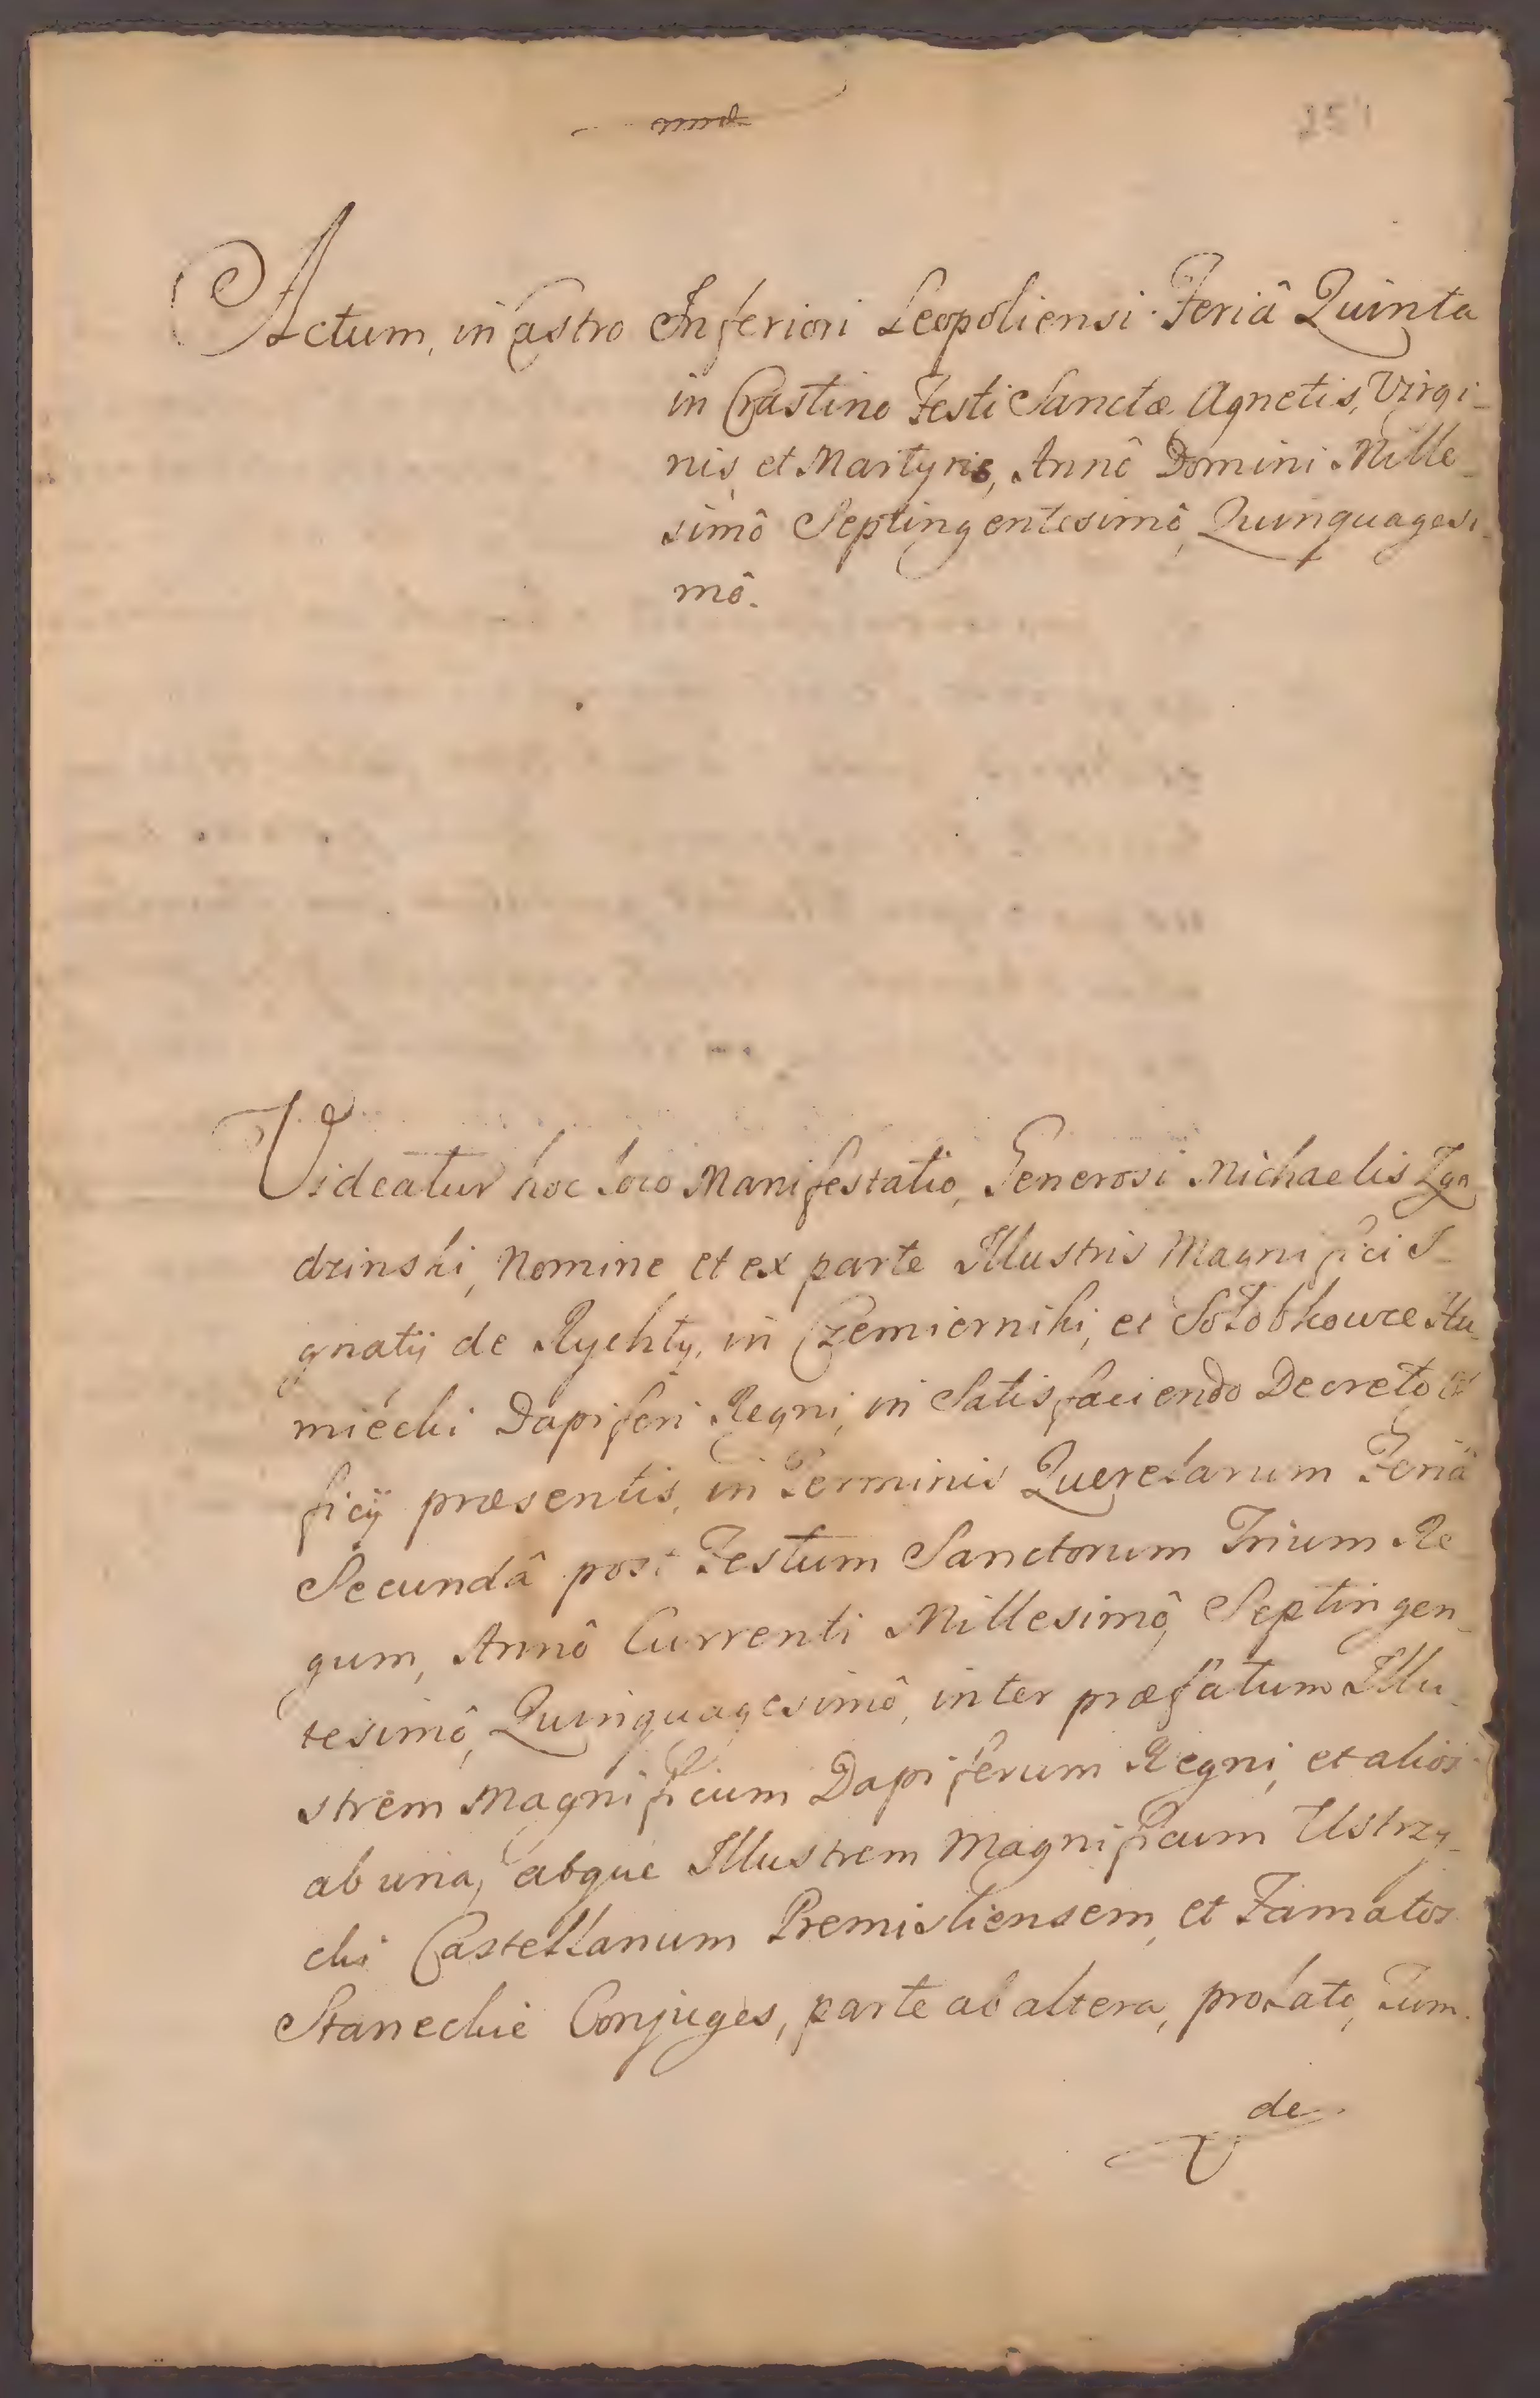 151
Actum, in Castro Inferiori Leopoliensi Feriâ Quinta
in Crastino Festi Sanctæ Agnetis, Virgi-
nis, et Martyris, Annô Domini Mille-
simô Septingentesimô, Quinquagesi-
mô.
Videatur hoc loco Manifestatio, Generosi Michaelis
dzinski, Nomine et ex parte Illustris Magnifici I-
gnatij de Rychty, in Czemierniki, et Sołobkowce Hu-
miecki Dapiferi Regni, in Satisfaciendo Decreto Of
ficij præsentis, in Terminis Querelarum Feriâ
Secundâ post Festum Sanctorum Trium Re-
gum, Annô Currenti Millesimô, Septingen-
tesimô, Quinquagesimô, inter præfatum Illu-
strem Magnificum Dapiferum Regni, et alios
ab una, atque Illustrem Magnificum Ustrzy-
cki Castellanum Premisliensem, et Famatos
Staneckie Conjuges, parte ab altera, prolato, Tum
de